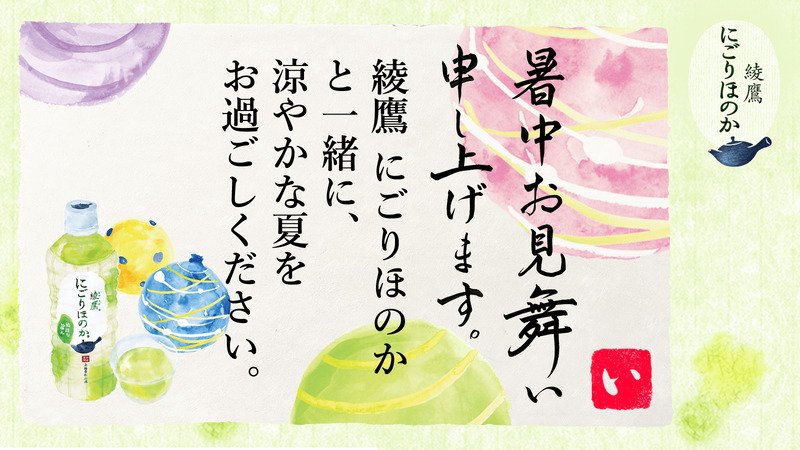 暑中お見舞い
申し上げます。
綾鷹 にごりほのか
と一緒に、
涼やかな夏を
お過ごしください。
い
綾鷹
にごりほのか
綾鷹
にごりほのか